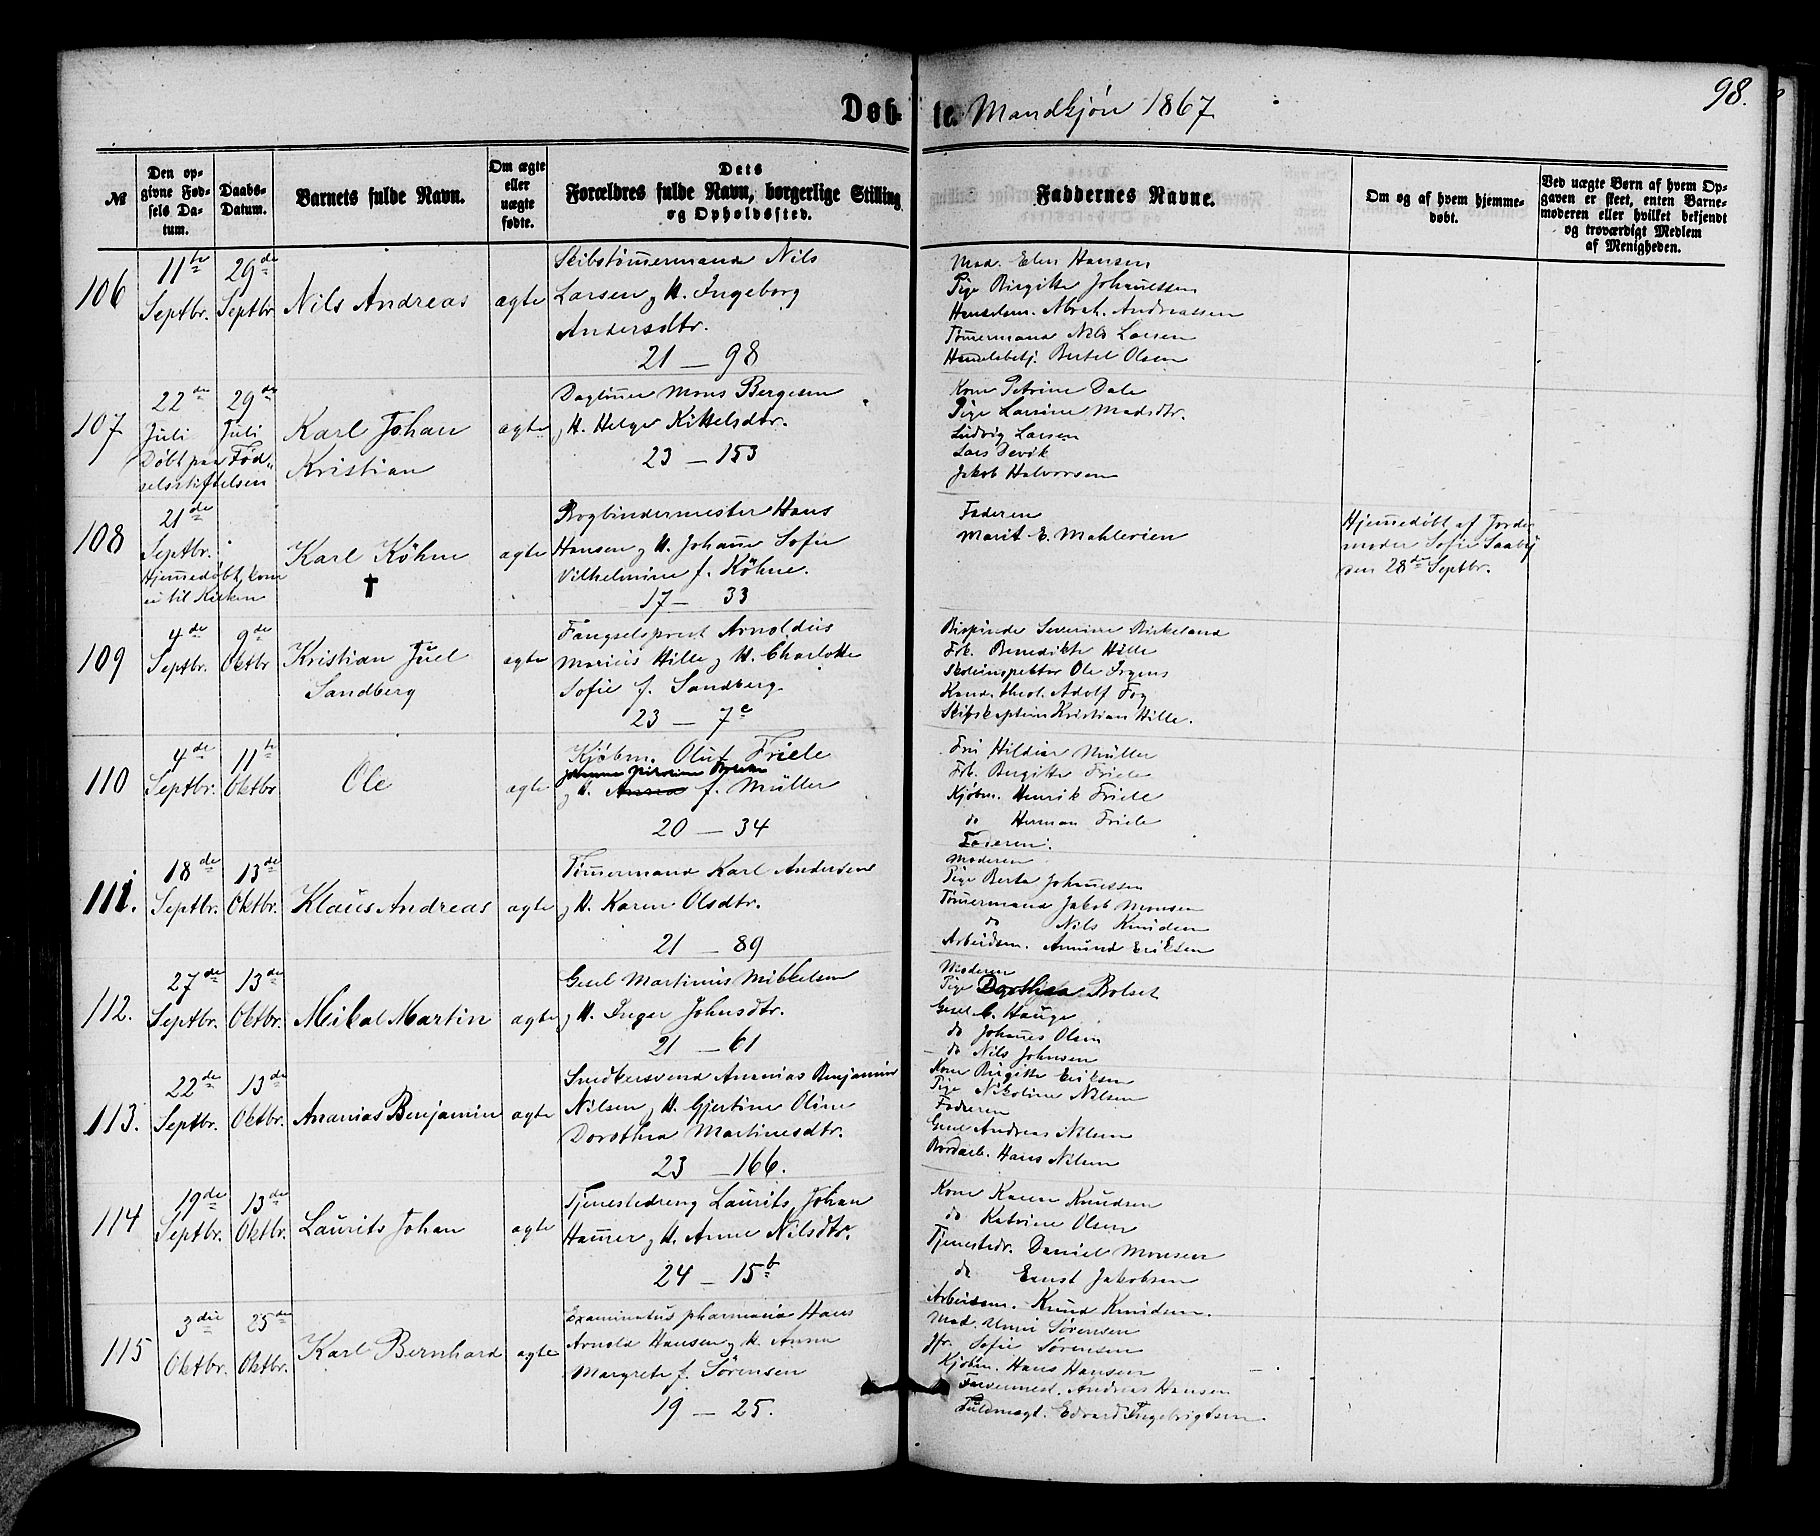 98.
Døb-te. Mandkjøn 1867
№
Den op-
givne Fød-
sels Da-
tum.
Daabs-
Datum.
Barnets fulde Navn.
Om ægte
eller
uægte
fødte.
Dets
Forældres fulde Navn, borgerlige Stilling
og Opholdssted.
Faddernes Navne.
Om og af hvem hjemme-
døbt.
Ved uægte Børn af hvem Op-
gaven er skeet, enten Barne-
moderen eller hvilket bekjendt
og troværdigt Medlem
af Menigheden.
106
11te
Septbr.
29de
Septbr
Nils Andreas
ægte
Skibstømermand Nils
Larsen og H. Ingeborg
Andersdtr.
21 — 98
Mad. Elen Hansen
Pige Birgitte Johanessen
Handelsm. Abrah. Andreassen
Tømermand Nils Larsen
Handelsbetj. Bertel Olsen
107
22de
Juli
29de
Juli
Døbt paa Fød-
selsstiftelsen
Karl Johan
Kristian
ægte
Dagløner Mons Bergesen
og H. Helge Kittelsdtr.
23 — 153
Kone Petrine Dale
Pige Larsine Madsdtr.
Ludvig Larsen
Lars Devik
Jakob Halvorsen
108
21de
Septbr.
Hjemedøbt, kom
ei til Kirken
Karl Köhne
†
ægte
Bogbindermester Hans
Hansen og H. Johanne Sofie
Vilhelmine f. Köhne.
17 — 33
Faderen
Marit E. Mahlerien
Hjemedøbt af Jorde
moder Sofie Saaby
den 28de Septbr.
109
4de
Septbr.
9de
Oktbr
Kristian Juel
Sandberg
ægte
Fængselsprest Arnoldus
Marius Hille og H. Charlotte
Sofie f. Sandberg.
23 — 7e
Bispinde Severine Birkeland
Frk. Benedikte Hille
Skoleinspektør Ole Irgens
Kand. theol. Adolf Fog
Skibskaptein Kristian Hille.
110
4de
Septbr.
11te
Oktbr.
Ole
ægte
Kjøbm. Oluf Friele
og H. Anna f. Müller
20 — 34
Fru Hildine Müller
Frk. Birgitte Friele
Kjøbm. Henrik Friele
do Herman Friele
Faderen.
111.
18de
Septbr.
13de
Oktbr.
Klaus Andreas
ægte
Tømermand Karl Andersen
og H. Karen Olsdtr.
21 — 89
Moderen
Pige Berta Johanessen
Tømermand Jakob Monsen
do Nils Knudsen
Arbeidsm. Amund Eriksen
112.
27de
Septbr.
13de
Oktbr.
Mikal Martin
ægte
Gesel Martinus Mikkelsen
og H. Inger Johnsdtr.
21 — 61
Moderen
Pige Dorthea Bolset
Gesel C. Hauge
do Johanes Olsen
do Nils Johnsen
113.
22de
Septbr.
13de
Oktbr.
Ananias Benjamin
ægte
Snedkersvend Ananias Benjamin
Nilsen og H. Gjertine Oline
Dorothea Martinusdtr.
23 — 166.
Kone Birgitte Eriksen
Pige Nikoline Nilsen
Faderen
Gesel Andreas Nilsen
Bordarb. Hans Nilsen
114
19de
Septbr.
13de
Oktbr.
Laurits Johan
ægte
Tjenestedreng Laurits Johan
Haurer og H. Anne Nilsdtr.
24 — 15b
Kone Karen Knudsen
do Katrine Olsen
Tjenestedr. Daniel Monsen
do Ernst Jakobsen
Arbeidsm. Knud Knudsen.
115
3die
Oktbr.
25de
Oktbr.
Karl Bernhard
ægte
Examinatus pharmacia Hans
Arnold Hansen og H. Anna
Margrete f. Sørensen
19 — 25.
Mad. Unni Sørensen
Jfr. Sofie Sørensen
Kjøbm. Hans Hansen
Farvermest. Andreas Hansen
Fuldmægt. Edvard Ingebrigtsen